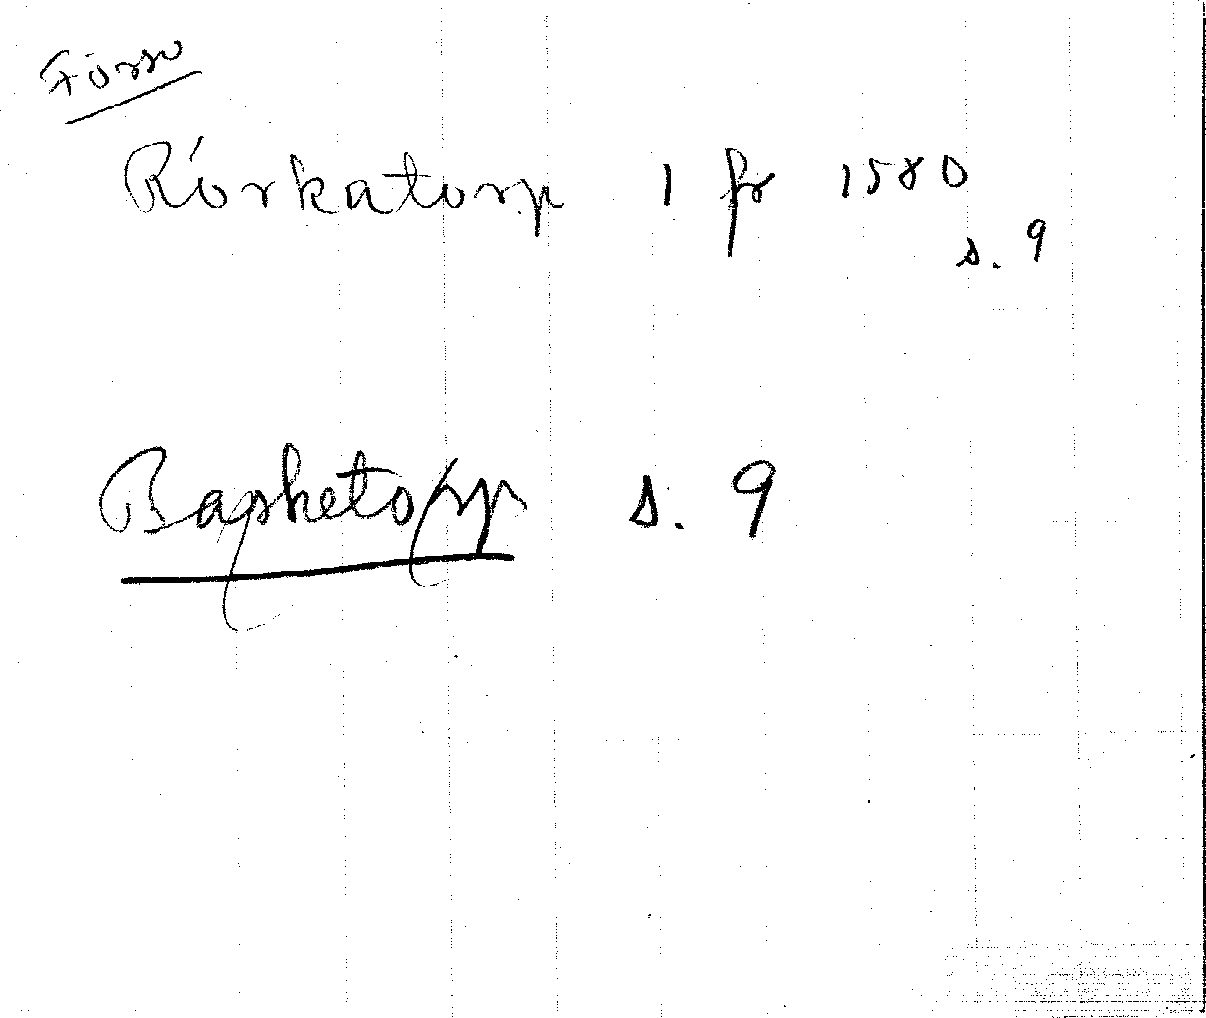 Försv
Rórkatorp 1 fr 1580
s. 9
Basketorp s. 9